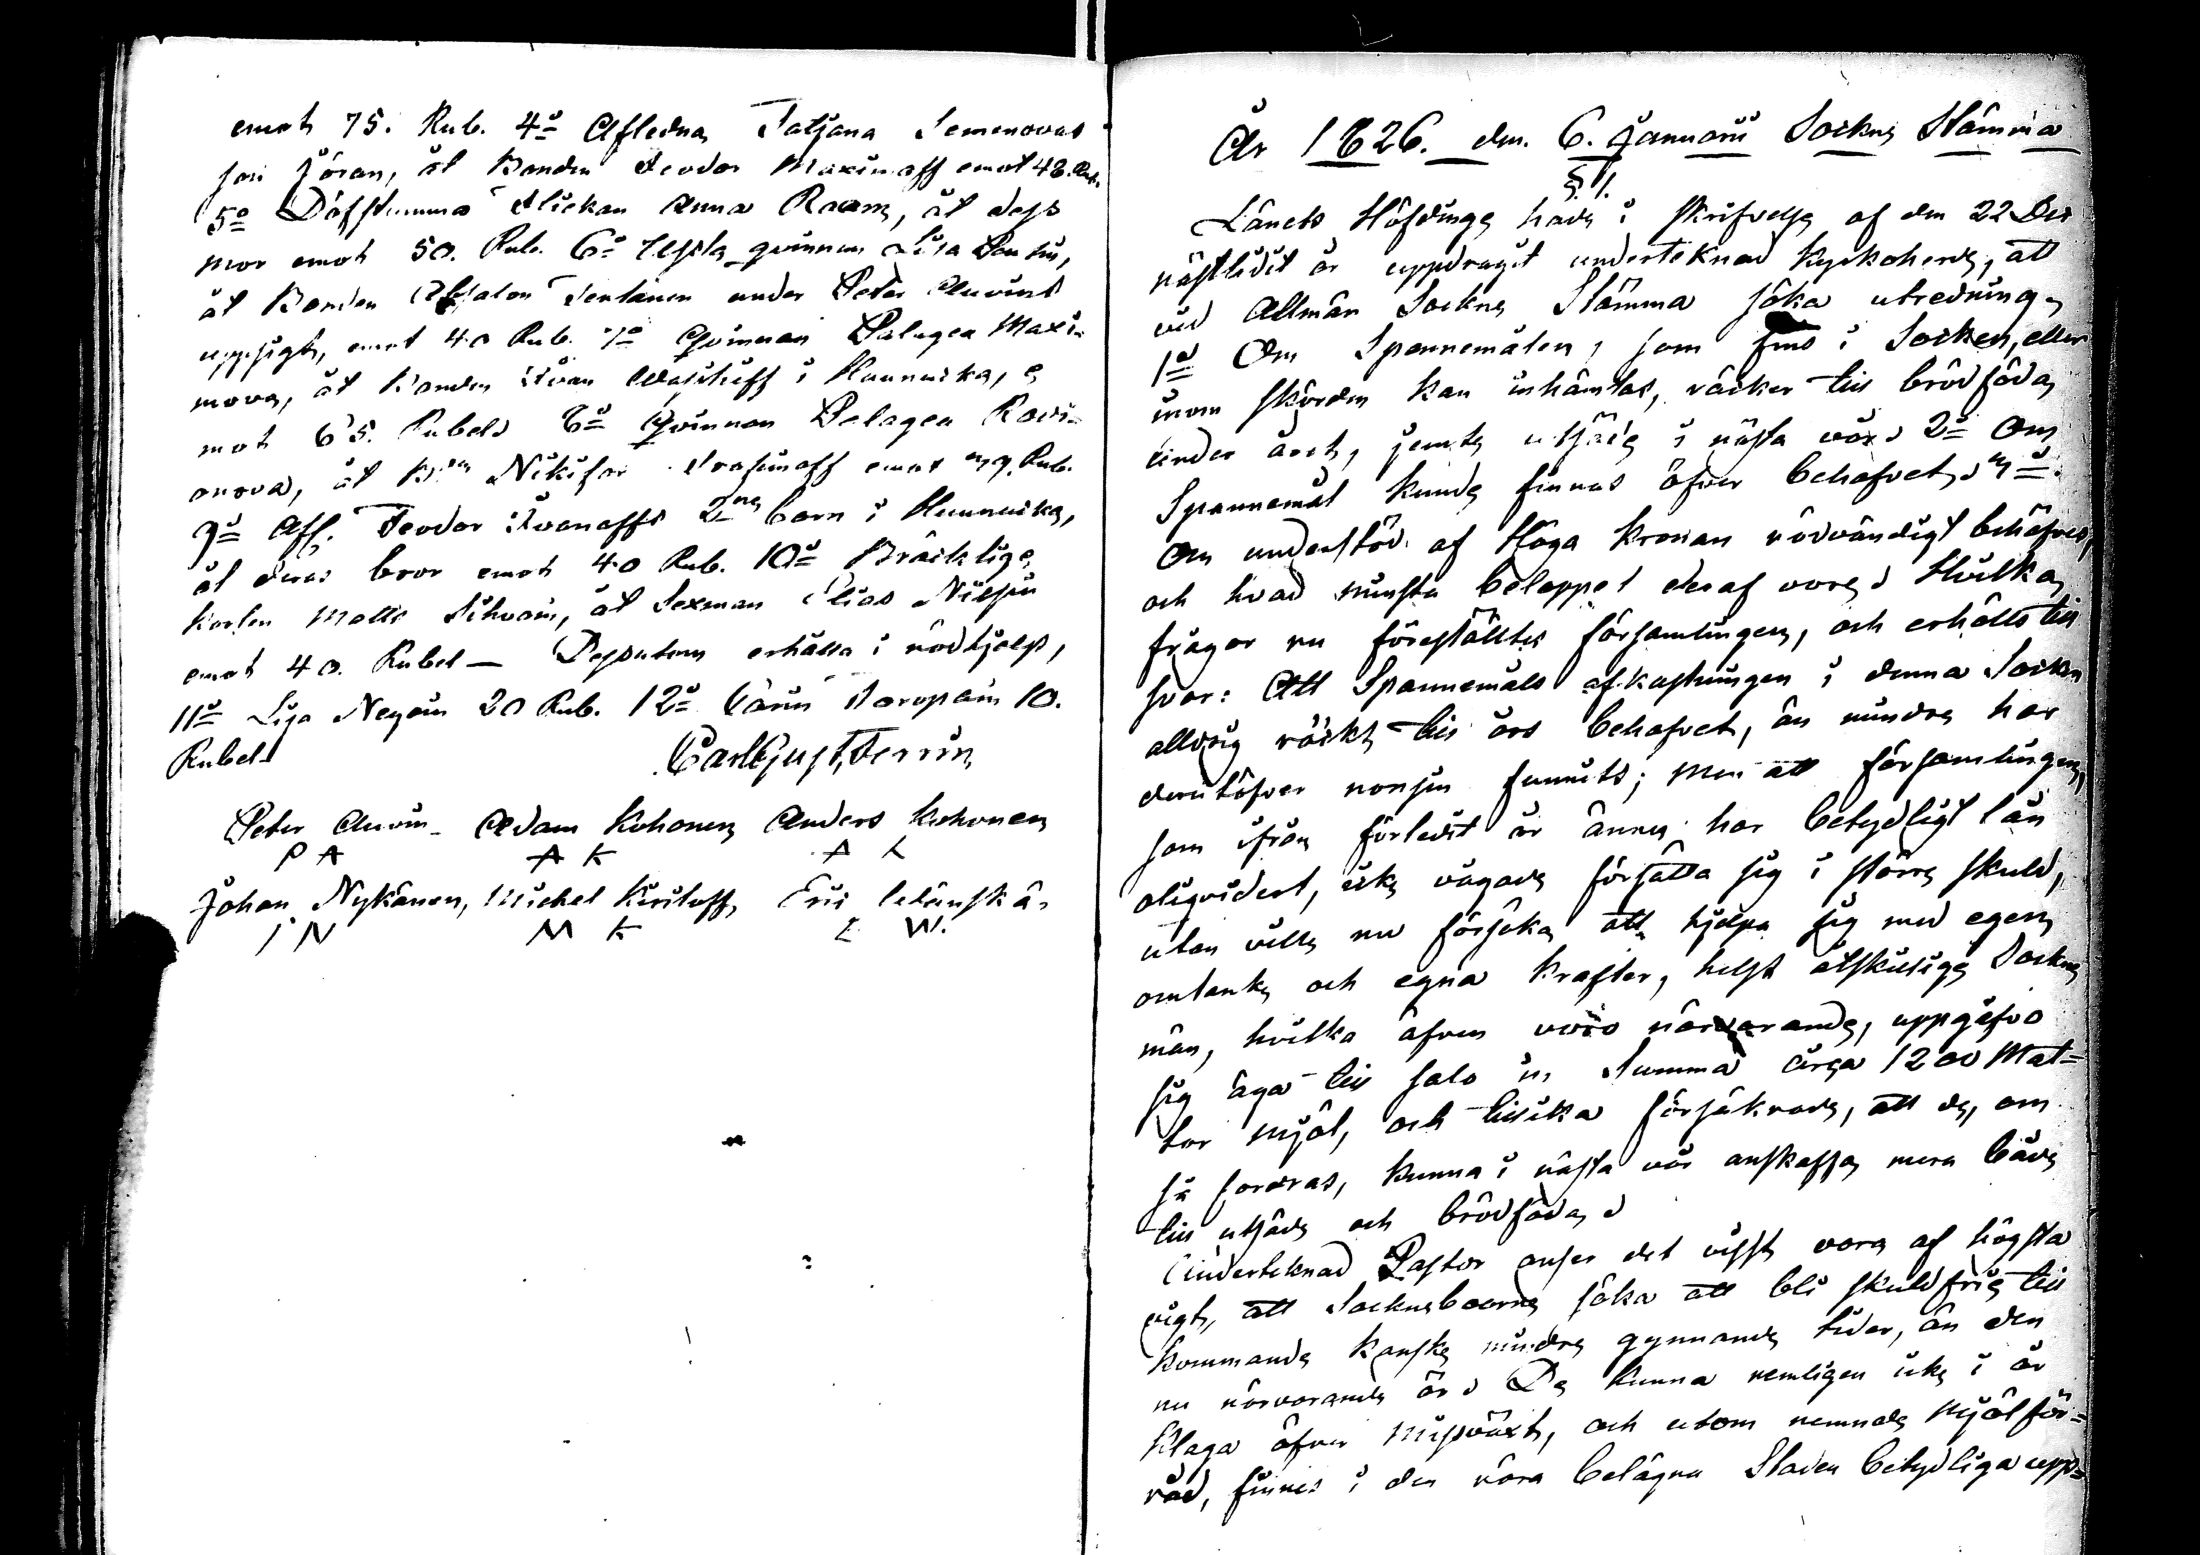 emot 75. Rub. 4=o Aflidna Tatjana Semenovas
son Jöran, åt Bonden Feodor Maximoff emot 48. Rub.
5=o Döfstumma Flickan Anna Raam, åt dess
mor emot 50. Rub. 6=o Usla qvinnan Lisa
åt Bonden Absalon Tentänen under Peter Auvins
uppsigt, emot 40 Rub. 7=o Qvinnan Palagea Maxi=
mova, åt Bonden Ivan Wasilieff i Hunnuka, e
mot 65. Rubel. 8=o Qvinnan Pelagea Rodi=
onova, åt B:den Nikifor Trofimoff emot Rub.
9=o Afl. Feodor Ivanoffs 2=ne barn i Hunnuka,
åt deras bror emot 40 Rub. 10=o Bräcklige
karlen Matts Sihvoin, åt Sexman Elias Nissin
emot 40. Rubel — Dessutom erhålla i nödhjelp,
11=o Lisa Neyoin 20 Rub. 12=o Carin Toropain 10.
Rubel.
Carl Gust. Ferrin,
Peter Auvin Adam Kohonen Anders Kohonen
P A A K A K
Johan Nykänen, Michel Kiriloff, Eric
I N M K E W.
År 1826. den. 6. Januarii Sockne Stämma
§ 1.
Länets Höfdinge hade i skrifvelse af den 22 Dec
nästlidit år uppdragit undertecknad Kyrkoherde, att
vid Allmän Sockne Stämma söka utredning,
1=o Om Spannemålen, som fins i Socken, eller
inom skörden kan inhämtas, räcker till brödföda
under året, jemte utsäde i nästa vår. 2=o Om
Spannemål kunde finnas öfver behofvet. 3=o
Om understöd af Höga Kronan nödvändigt behöfves,
och hvad minsta beloppet deraf vore. Hvilka
frågor nu föreställtes församlingen, och erhölls till
svar: Att Spannemåls afkastningen i denna Socken
alldrig räckt till års behofvet, än mindre har
derutöfver nonsin funnits; men att församlingen,
som ifrån förledit år ännu har betydligt lån
oliqvidert, icke vågade försätta sig i större skuld,
utan ville nu försöka att hjelpa sig med egen
omtanke och egna krafter, helst åtskillige Sockne
män, hvilka äfven voro närvarande, uppgåfvo
sig äga till salu in Summa circa 1200 Mat=
tor mjöl, och tillika försäkrade, att de, om
så fordras, kunna i nästa vår anskaffa mera både
till utsäde och brödföda.
Undertecknad Pastor anser det visst vara af högsta
vigt, att Sockneboerne söka att bli skuldfrie till
kommande kanske mindre gynnande tider, än den
nu närvarande är. De kunna nemligen icke i år
klaga öfver missväxt, och utom nemnde mjölför=
råd, finnes i den nära belägna Staden betydliga upp=